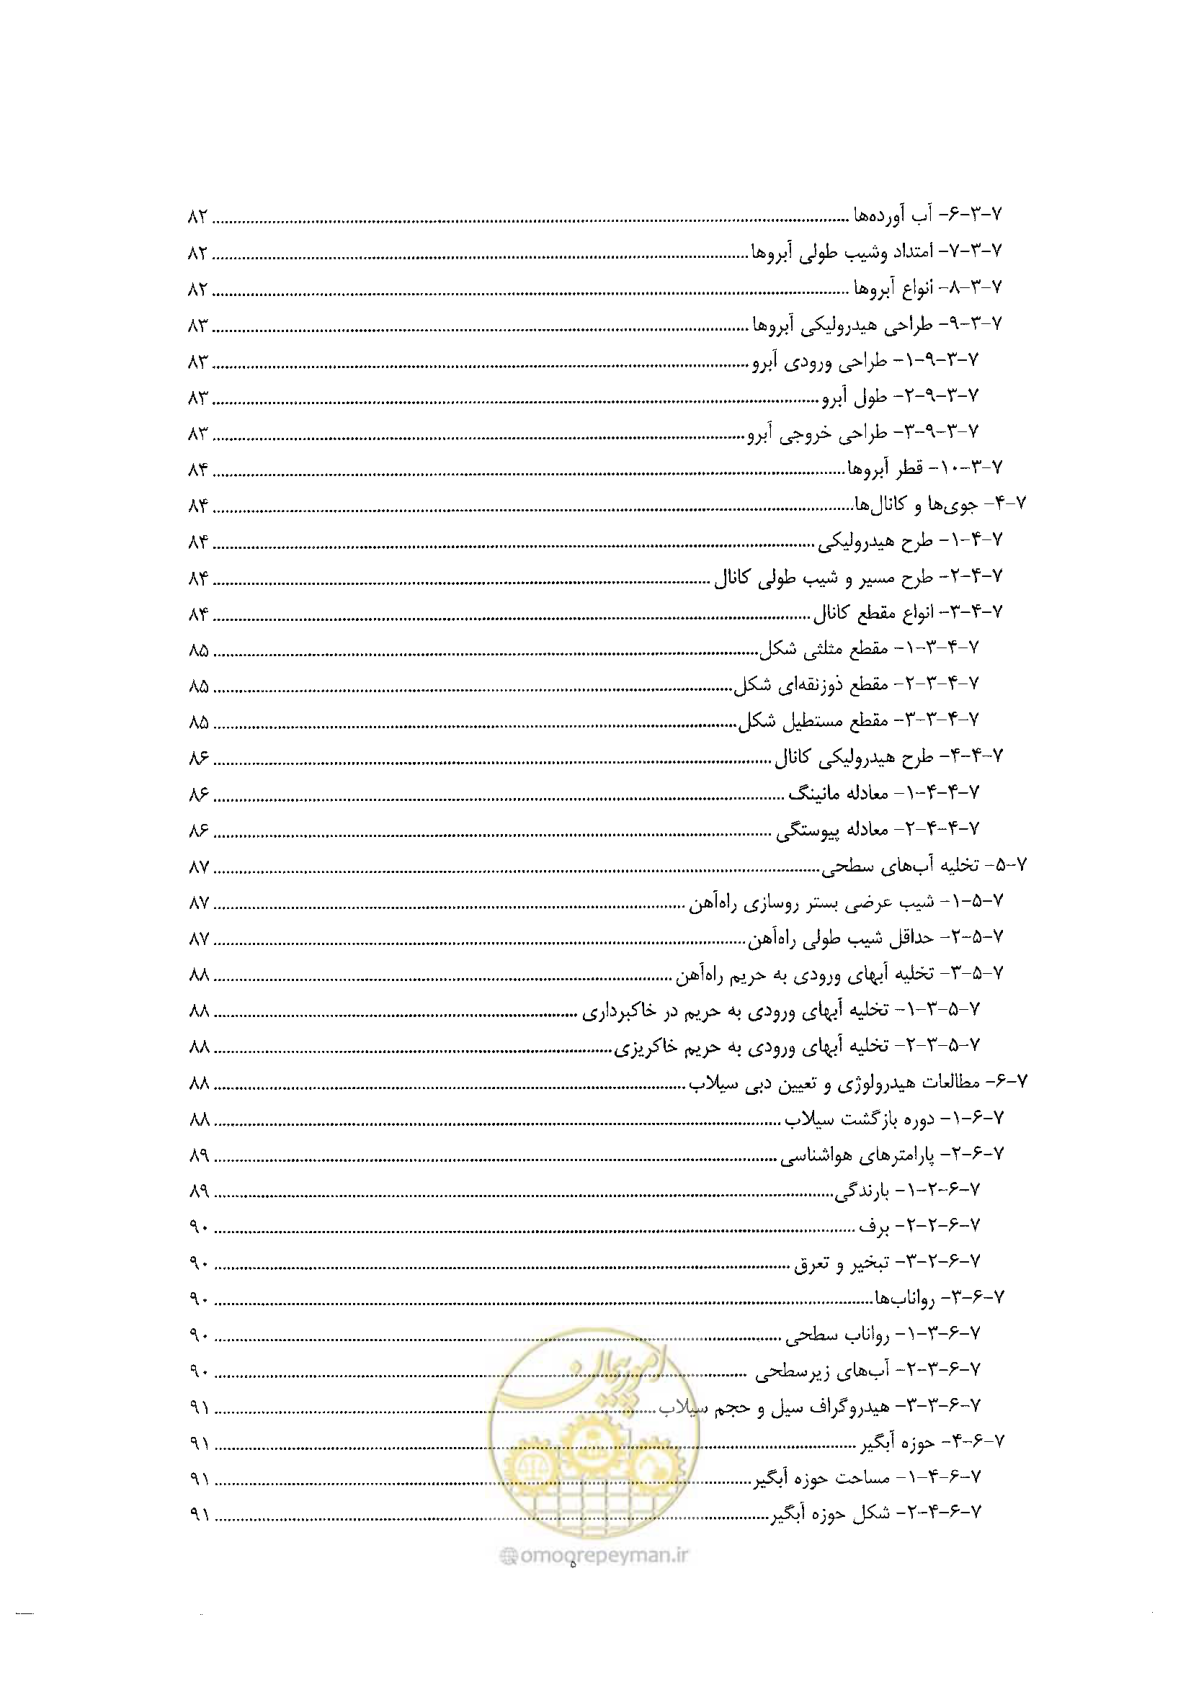 ۷-۳-۶- آب آورده‌ها ۸۲
۷-۳-۷- امتداد وشیب طولی آبروها ۸۲
۷-۳-۸- انواع آبروها ۸۲
۷-۳-۹- طراحی هیدرولیکی آبروها ۸۳
۷-۳-۹-۱- طراحی ورودی آبرو ۸۳
۷-۳-۹-۲- طول آبرو ۸۳
۷-۳-۹-۳- طراحی خروجی آبرو ۸۳
۷-۳-۱۰- قطر آبروها ۸۴
۷-۴- جوی‌ها و کانال‌ها ۸۴
۷-۴-۱- طرح هیدرولیکی ۸۴
۷-۴-۲- طرح مسیر و شیب طولی کانال ۸۴
۷-۴-۳- انواع مقطع کانال ۸۴
۷-۴-۳-۱- مقطع مثلثی شکل ۸۵
۷-۴-۳-۲- مقطع ذوزنقه‌ای شکل ۸۵
۷-۴-۳-۳- مقطع مستطیل شکل ۸۵
۷-۴-۴- طرح هیدرولیکی کانال ۸۶
۷-۴-۴-۱- معادله مانینگ ۸۶
۷-۴-۴-۲- معادله پیوستگی ۸۶
۷-۵- تخلیه آب‌های سطحی ۸۷
۷-۵-۱- شیب عرضی بستر روسازی راه‌آهن ۸۷
۷-۵-۲- حداقل شیب طولی راه‌آهن ۸۷
۷-۵-۳- تخلیه آبهای ورودی به حریم راه‌آهن ۸۸
۷-۵-۳-۱- تخلیه آبهای ورودی به حریم در خاکبرداری ۸۸
۷-۵-۳-۲- تخلیه آبهای ورودی به حریم خاکریزی ۸۸
۷-۶- مطالعات هیدرولوژی و تعیین دبی سیلاب ۸۸
۷-۶-۱- دوره بازگشت سیلاب ۸۸
۷-۶-۲- پارامترهای هواشناسی ۸۹
۷-۶-۲-۱- بارندگی ۸۹
۷-۶-۲-۲- برف ۹۰
۷-۶-۲-۳- تبخیر و تعرق ۹۰
۷-۶-۳- رواناب‌ها ۹۰
۷-۶-۳-۱- رواناب سطحی ۹۰
۷-۶-۳-۲- آب‌های زیرسطحی ۹۰
۷-۶-۳-۳- هیدروگراف سیل و حجم سیلاب ۹۱
۷-۶-۴- حوزه آبگیر ۹۱
۷-۶-۴-۱- مساحت حوزه آبگیر ۹۱
۷-۶-۴-۲- شکل حوزه آبگیر ۹۱
امور پیمان
@omoorepeyman.ir
ه